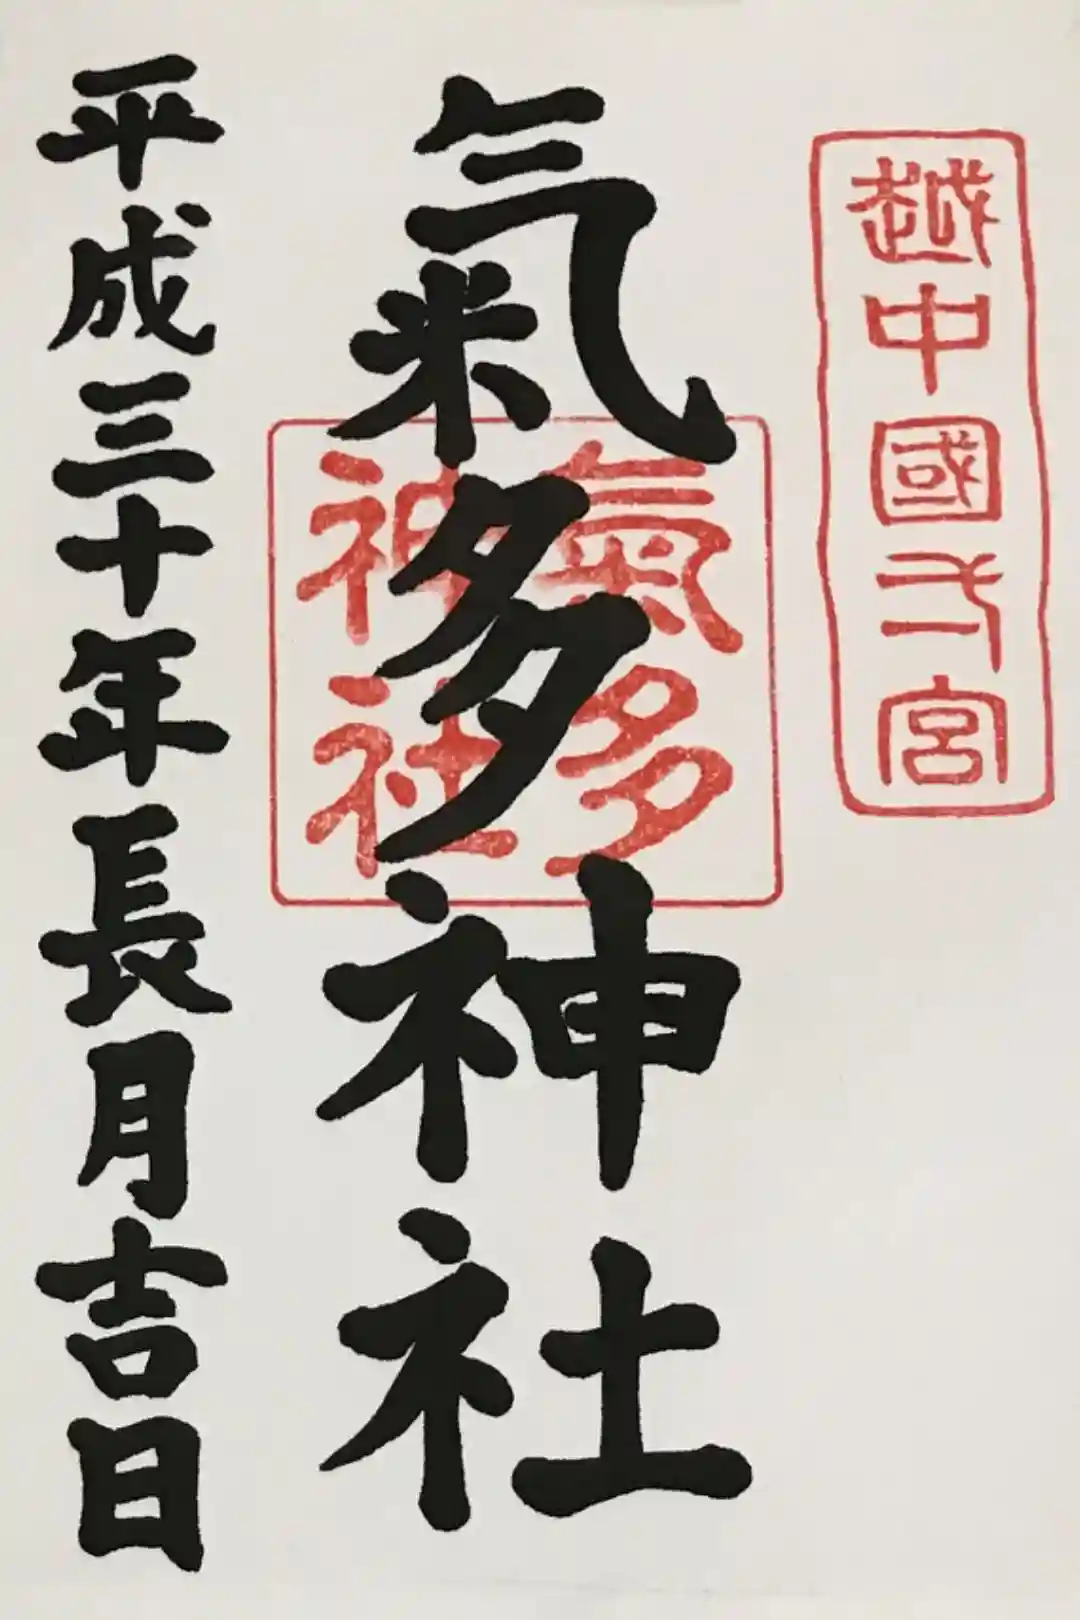 越中國一宮
氣多神社
氣多
神社
平成三十年長月吉日